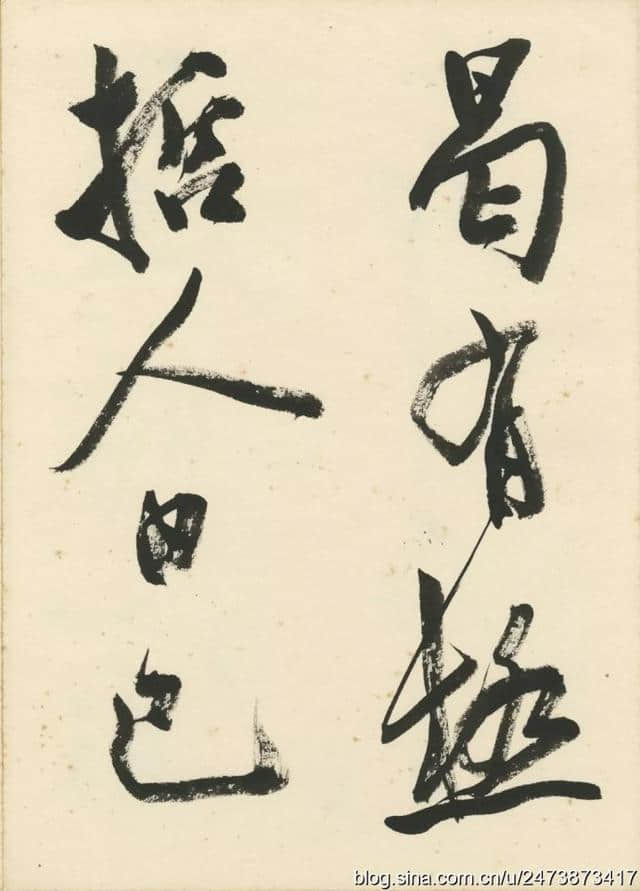 曷有极
哲人日已
blog.sina.com.cn/u/2473873417